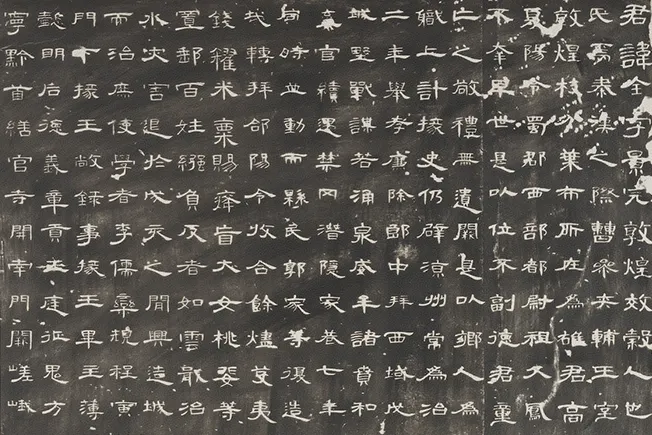 君諱全字景完敦煌效穀人也
氏焉秦漢之際曹參夾輔王室
敦煌枝分葉布所在為雄君高
夏陽令蜀郡西部都尉祖父鳳
不幸早世是以位不副德君童
亡之敬禮無遺闕是以鄉人為
職上計掾史仍辟涼州常為治
二年舉孝廉除郎中拜西域戊
城野戰謀若涌泉威牟諸賁和
棄官續遇禁网潛隱家巷七年
旬時並動而縣民郭家等復造
哉轉拜郃陽令收合餘燼芟夷
錢糴米粟賜癃盲大女桃婓等
置郵百姓繈負反者如雲戢治
水災害退於戌亥之間興造城
而治庶使學者李儒欒規程寅
門下掾王敞錄事掾王畢主薄
懿明后德義章貢王庭征鬼方
寧黔首繕官寺開南門闕嵯峨